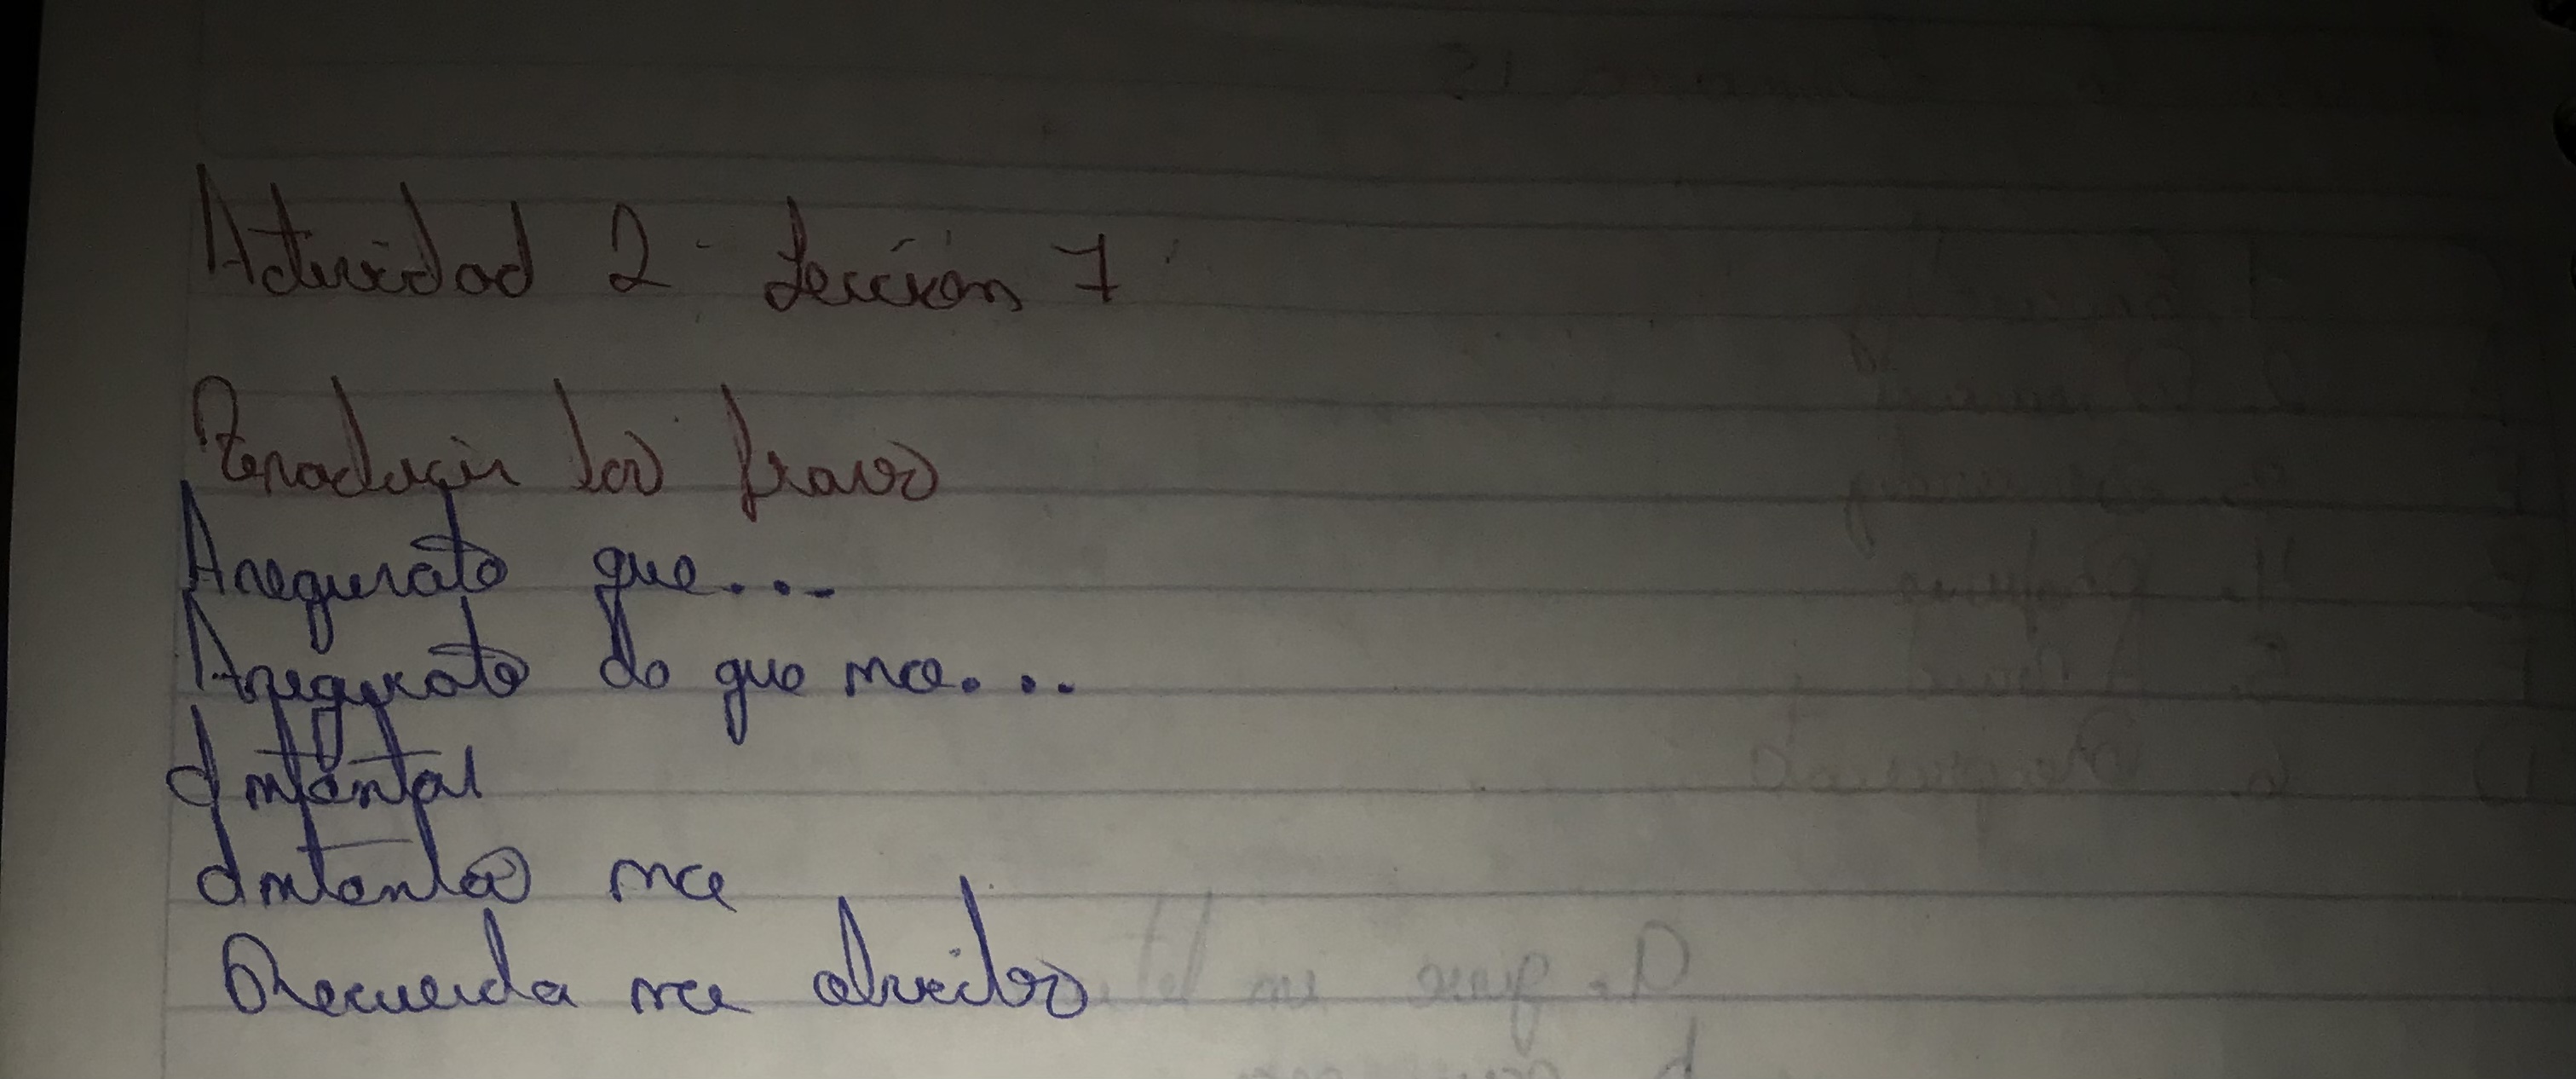 Actividad 2 Lección 7
Traducir las frases
Asegurate que...
Asegurate de que no...
Intentar
Intentas no
Recuerda no olvides